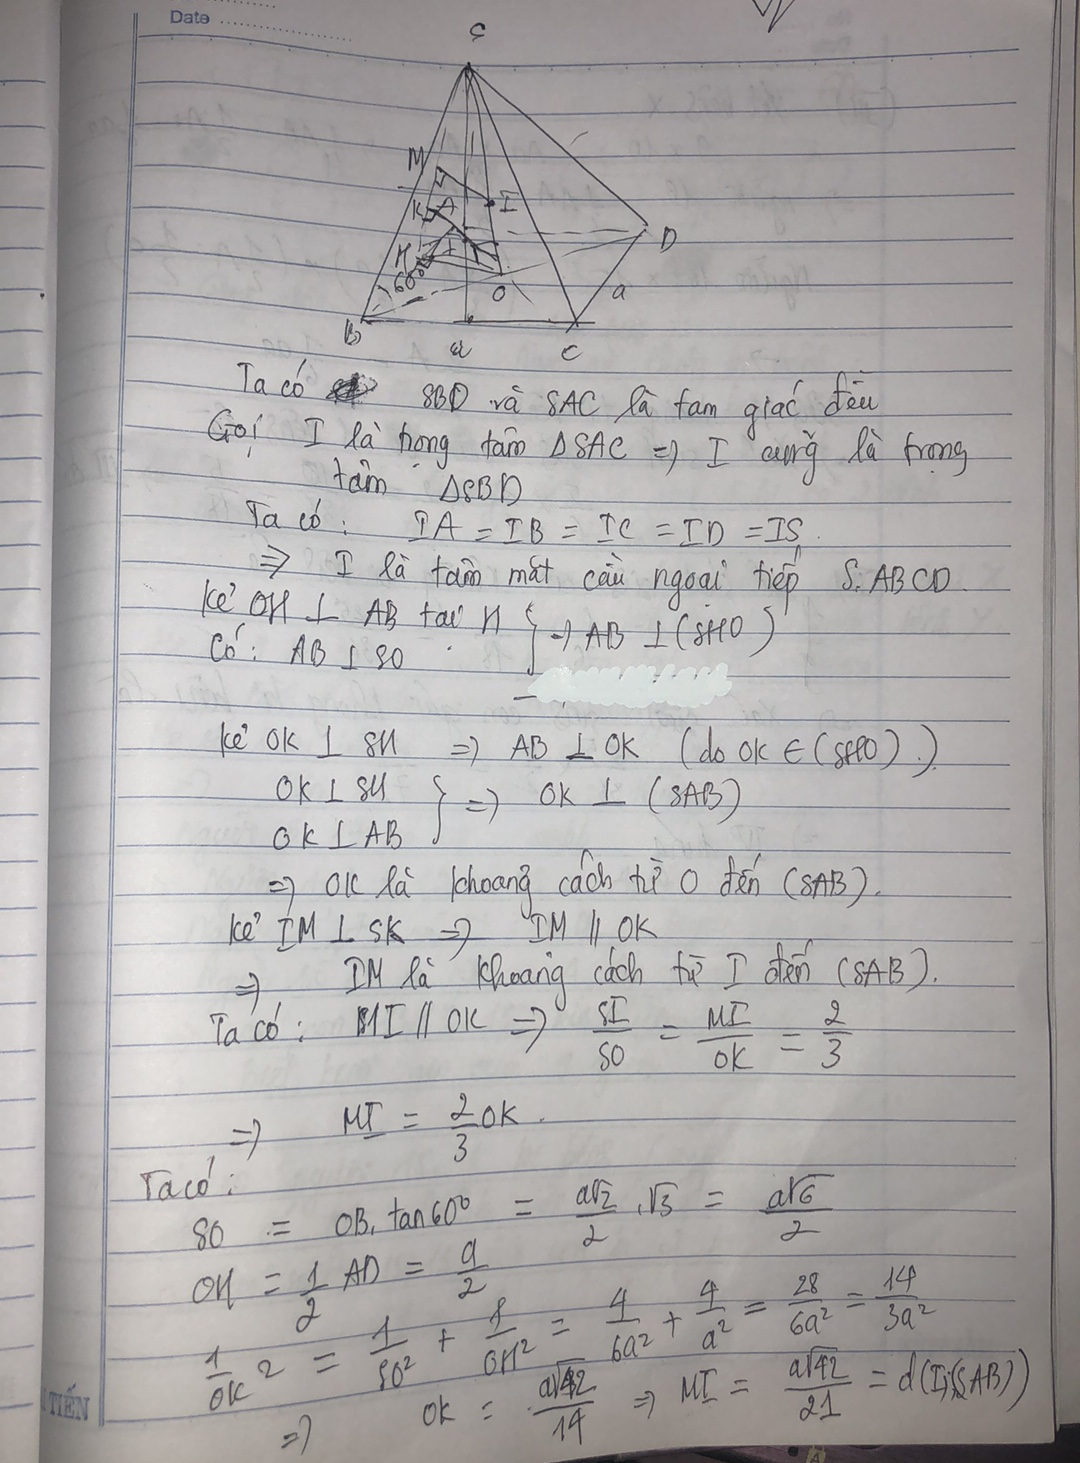 Date
S
M
I
K
A
H
60°
O
D
a
B
a
C
Ta có SBD và SAC là tam giác đều
Gọi I là trọng tâm ΔSAC => I cũng là trọng
tâm ΔSBD
Ta có: IA = IB = IC = ID = IS.
=> I là tâm mặt cầu ngoại tiếp S.ABCD
Kẻ OH ⊥ AB tại H } => AB ⊥ (SHO)
Có: AB ⊥ SO
Kẻ OK ⊥ SH => AB ⊥ OK (do OK ∈ (SHO)).
OK ⊥ SH } => OK ⊥ (SAB)
OK ⊥ AB
=> OK là khoảng cách từ O đến (SAB).
Kẻ IM ⊥ SK => IM // OK
=> IM là khoảng cách từ I đến (SAB).
Ta có: MI // OK => SI/SO = MI/OK = 2/3
=> MI = 2/3 OK.
Ta có:
SO = OB. tan 60° = a√2/2 . √3 = a√6/2
OH = 1/2 AD = a/2
1/OK² = 1/SO² + 1/OH² = 4/6a² + 4/a² = 28/6a² = 14/3a²
=> OK = a√42/14 => MI = a√42/21 = d(I;(SAB))
TIẾN